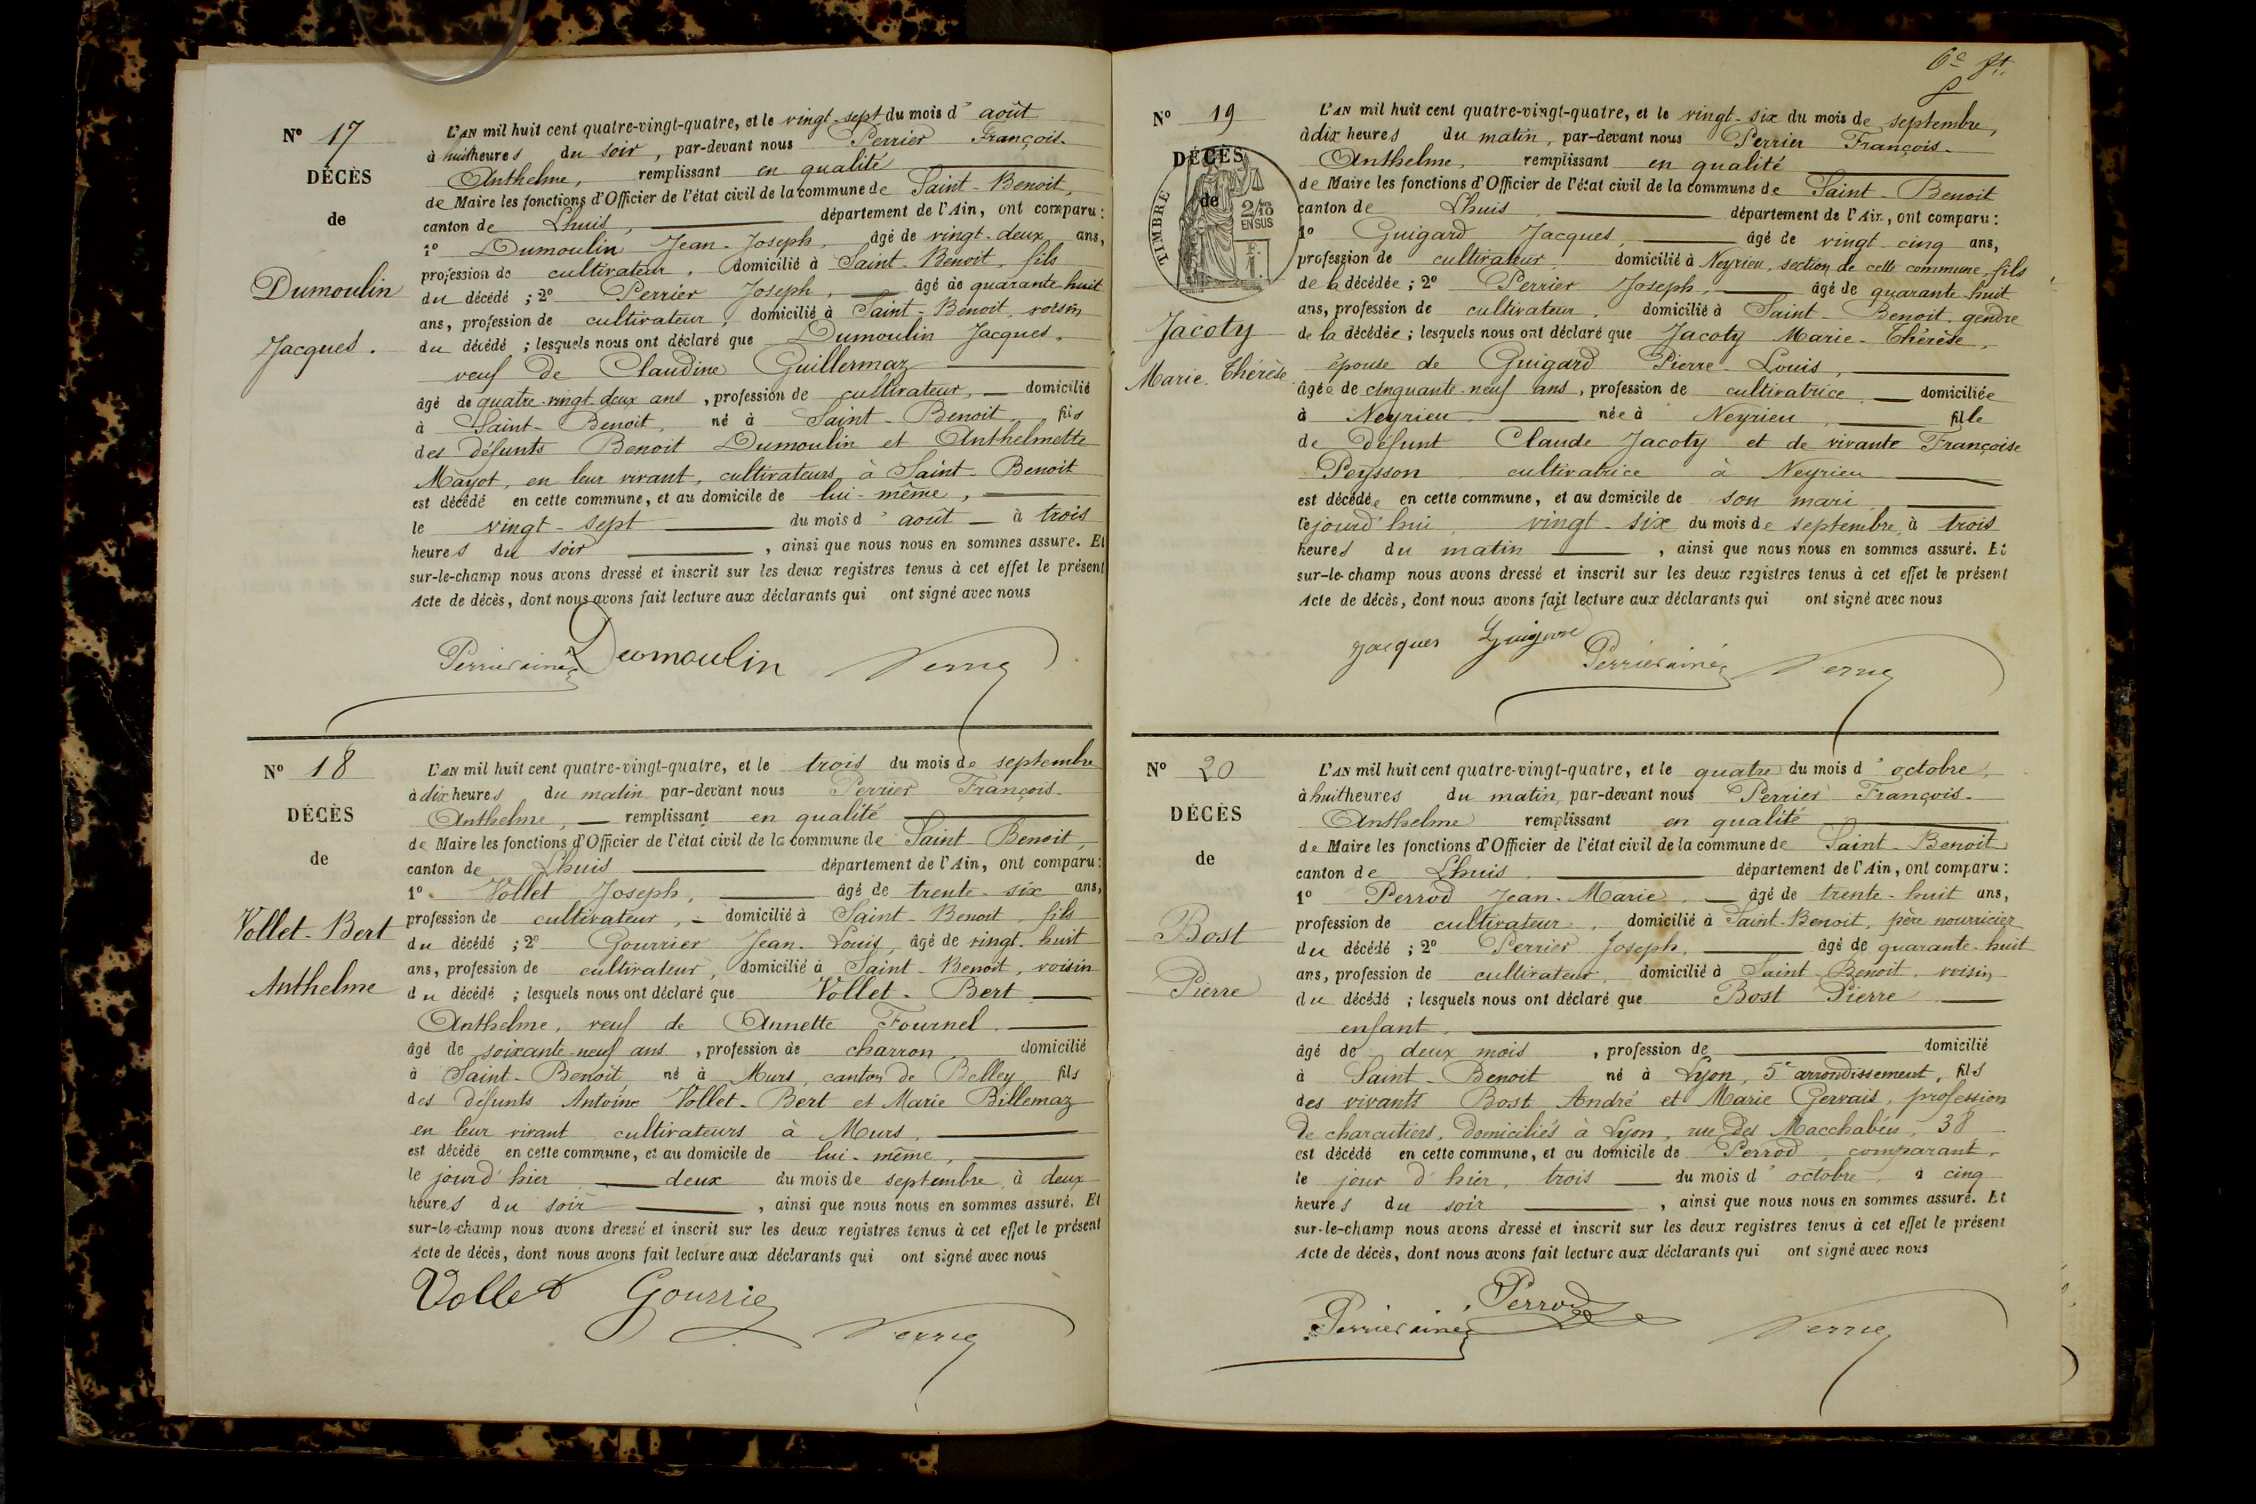 Nº 17
DÉCÈS
de
Dumoulin
Jacques.
L'AN mil huit cent quatre-vingt-quatre, et le vingt-sept du mois d'août
à huit heures du soir, par-devant nous Perrier François-
Anthelme, remplissant en qualité
de Maire les fonctions d'Officier de l'état civil de la commune de Saint-Benoit,
canton de Lhuis, département de l'Ain, ont comparu :
1º Dumoulin Jean-Joseph, âgé de vingt-deux ans,
profession de cultivateur, domicilié à Saint-Benoit, fils
du décédé ; 2º Perrier Joseph, âgé de quarante-huit
ans, profession de cultivateur, domicilié à Saint-Benoit, voisin
du décédé ; lesquels nous ont déclaré que Dumoulin Jacques,
veuf de Claudine Guillermaz
âgé de quatre-vingt-deux ans, profession de cultivateur, domicilié
à Saint-Benoit, né à Saint-Benoit, fils
des défunts Benoit Dumoulin et Anthelmette
Mayot, en leur vivant, cultivateurs à Saint-Benoit
est décédé en cette commune, et au domicile de lui-même,
le vingt-sept du mois d'août à trois
heures du soir, ainsi que nous nous en sommes assuré. Et
sur-le-champ nous avons dressé et inscrit sur les deux registres tenus à cet effet le présent
Acte de décès, dont nous avons fait lecture aux déclarants qui ont signé avec nous
Perrier ainé Dumoulin
Nº 18
DÉCÈS
de
Vollet-Bert
Anthelme
L'AN mil huit cent quatre-vingt-quatre, et le trois du mois de septembre
à dix heures du matin par-devant nous Perrier François-
Anthelme, remplissant en qualité
de Maire les fonctions d'Officier de l'état civil de la commune de Saint-Benoit,
canton de Lhuis département de l'Ain, ont comparu :
1º Vollet Joseph, âgé de trente-six ans,
profession de cultivateur, domicilié à Saint-Benoit, fils
du décédé ; 2º Gourrier Jean-Louis, âgé de vingt-huit
ans, profession de cultivateur, domicilié à Saint-Benoit, voisin
du décédé ; lesquels nous ont déclaré que Vollet-Bert
Anthelme, veuf de Annette Fournel,
âgé de soixante-neuf ans, profession de charron domicilié
à Saint-Benoit, né à Murs, canton de Belley fils
des défunts Antoine Vollet-Bert et Marie Billemaz
en leur vivant cultivateurs à Murs,
est décédé en cette commune, et au domicile de lui-même,
le jourd'hier deux du mois de septembre à deux
heures du soir, ainsi que nous nous en sommes assuré. Et
sur-le-champ nous avons dressé et inscrit sur les deux registres tenus à cet effet le présent
Acte de décès, dont nous avons fait lecture aux déclarants qui ont signé avec nous
Vollet Gourrier
6e ft
Nº 19
DÉCÈS
de
TIMBRE
2/10
EN SUS
Jacoty
Marie-Thérèse
L'AN mil huit cent quatre-vingt-quatre, et le vingt-six du mois de septembre,
à dix heures du matin, par-devant nous Perrier François-
Anthelme, remplissant en qualité
de Maire les fonctions d'Officier de l'état civil de la commune de Saint-Benoit
canton de Lhuis, département de l'Ain, ont comparu :
1º Guigard Jacques, âgé de vingt-cinq ans,
profession de cultivateur, domicilié à Neyrieu, section de cette commune, fils
de la décédée ; 2º Perrier Joseph, âgé de quarante-huit
ans, profession de cultivateur, domicilié à Saint-Benoit, gendre
de la décédée ; lesquels nous ont déclaré que Jacoty Marie-Thérèse,
épouse de Guigard Pierre-Louis,
âgée de cinquante-neuf ans, profession de cultivatrice, domiciliée
à Neyrieu née à Neyrieu, fille
de défunt Claude Jacoty et de vivante Françoise
Peysson cultivatrice à Neyrieu
est décédée en cette commune, et au domicile de son mari
le jourd'hui vingt-six du mois de septembre à trois
heures du matin, ainsi que nous nous en sommes assuré. Et
sur-le-champ nous avons dressé et inscrit sur les deux registres tenus à cet effet le présent
Acte de décès, dont nous avons fait lecture aux déclarants qui ont signé avec nous
Jacques Guigard Perrier ainé
Nº 20
DÉCÈS
de
Bost
Pierre
L'AN mil huit cent quatre-vingt-quatre, et le quatre du mois d'octobre,
à huit heures du matin, par-devant nous Perrier François-
Anthelme remplissant en qualité
de Maire les fonctions d'Officier de l'état civil de la commune de Saint-Benoit
canton de Lhuis, département de l'Ain, ont comparu :
1º Perrod Jean-Marie, âgé de trente-huit ans,
profession de cultivateur, domicilié à Saint-Benoit, père nourricier
du décédé ; 2º Perrier Joseph, âgé de quarante-huit
ans, profession de cultivateur, domicilié à Saint-Benoit, voisin
du décédé ; lesquels nous ont déclaré que Bost Pierre
enfant,
âgé de deux mois, profession de domicilié
à Saint-Benoit né à Lyon, 5e arrondissement, fils
des vivants Bost André et Marie Gervais, profession
de charcutiers, domiciliés à Lyon, rue des Macchabeu, 38
est décédé en cette commune, et au domicile de Perrod, comparant,
le jour d'hier, trois du mois d'octobre, à cinq
heures du soir, ainsi que nous nous en sommes assuré. Et
sur-le-champ nous avons dressé et inscrit sur les deux registres tenus à cet effet le présent
Acte de décès, dont nous avons fait lecture aux déclarants qui ont signé avec nous
Perrod
Perrier ainé